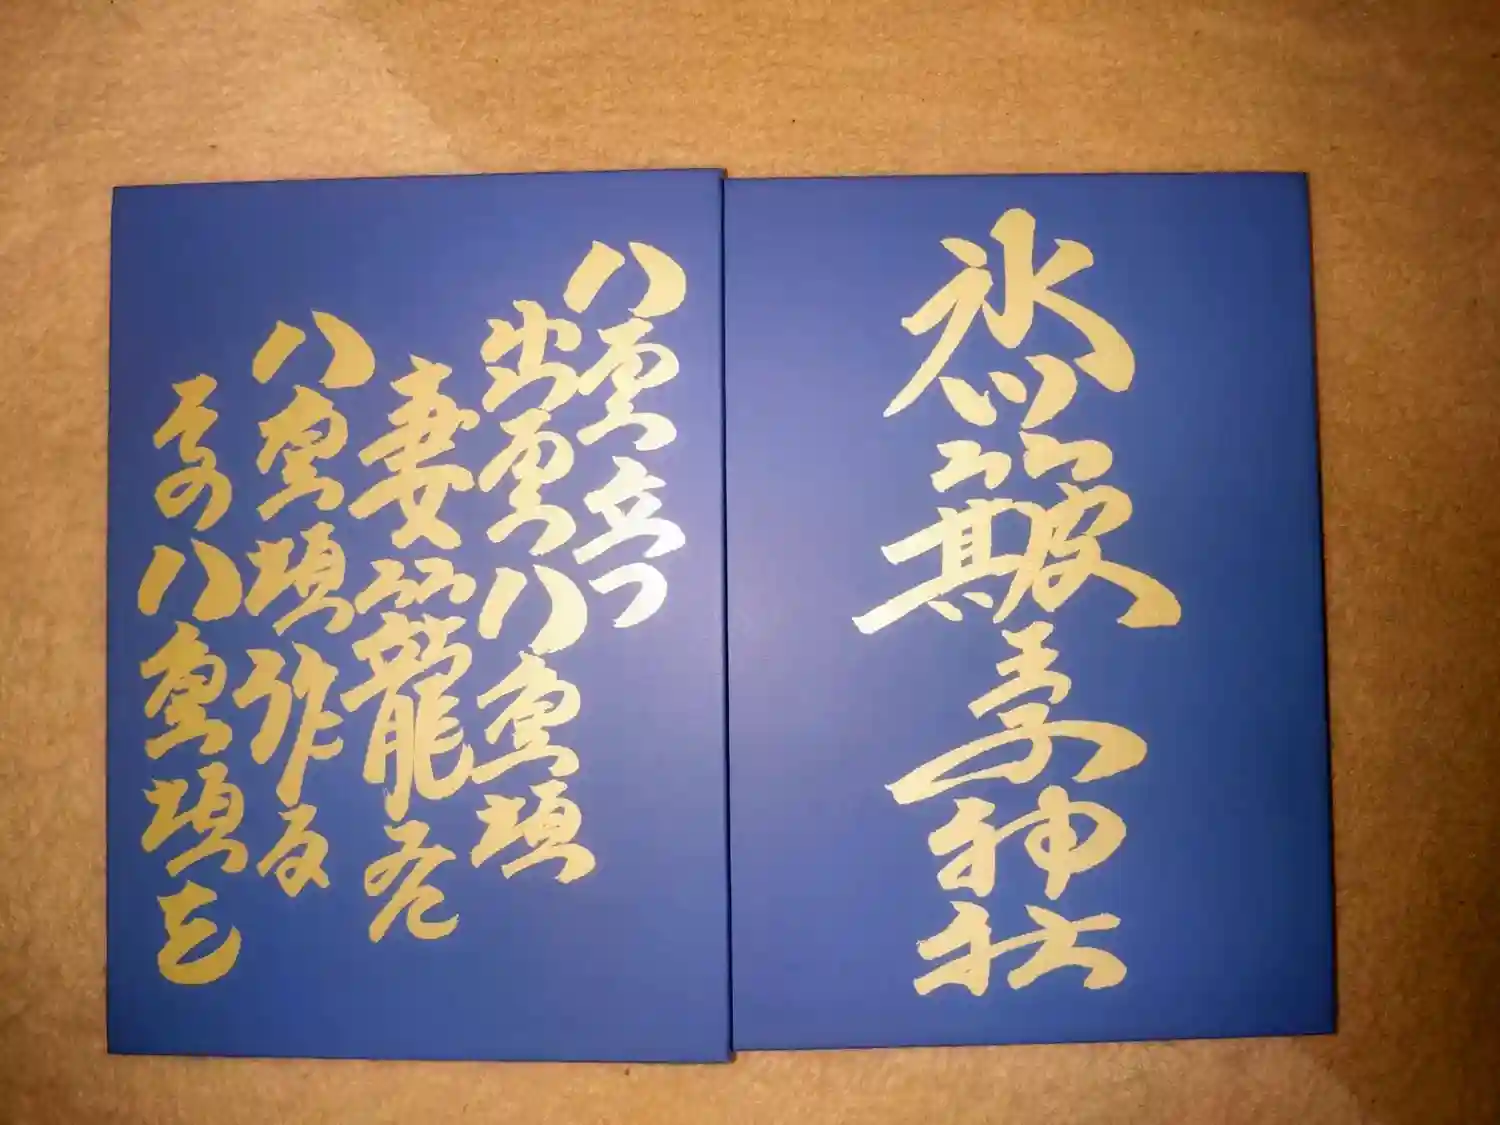 氷川簸王子神社
八雲立つ
出雲八重垣
妻籠
八重垣作る
その八重垣を